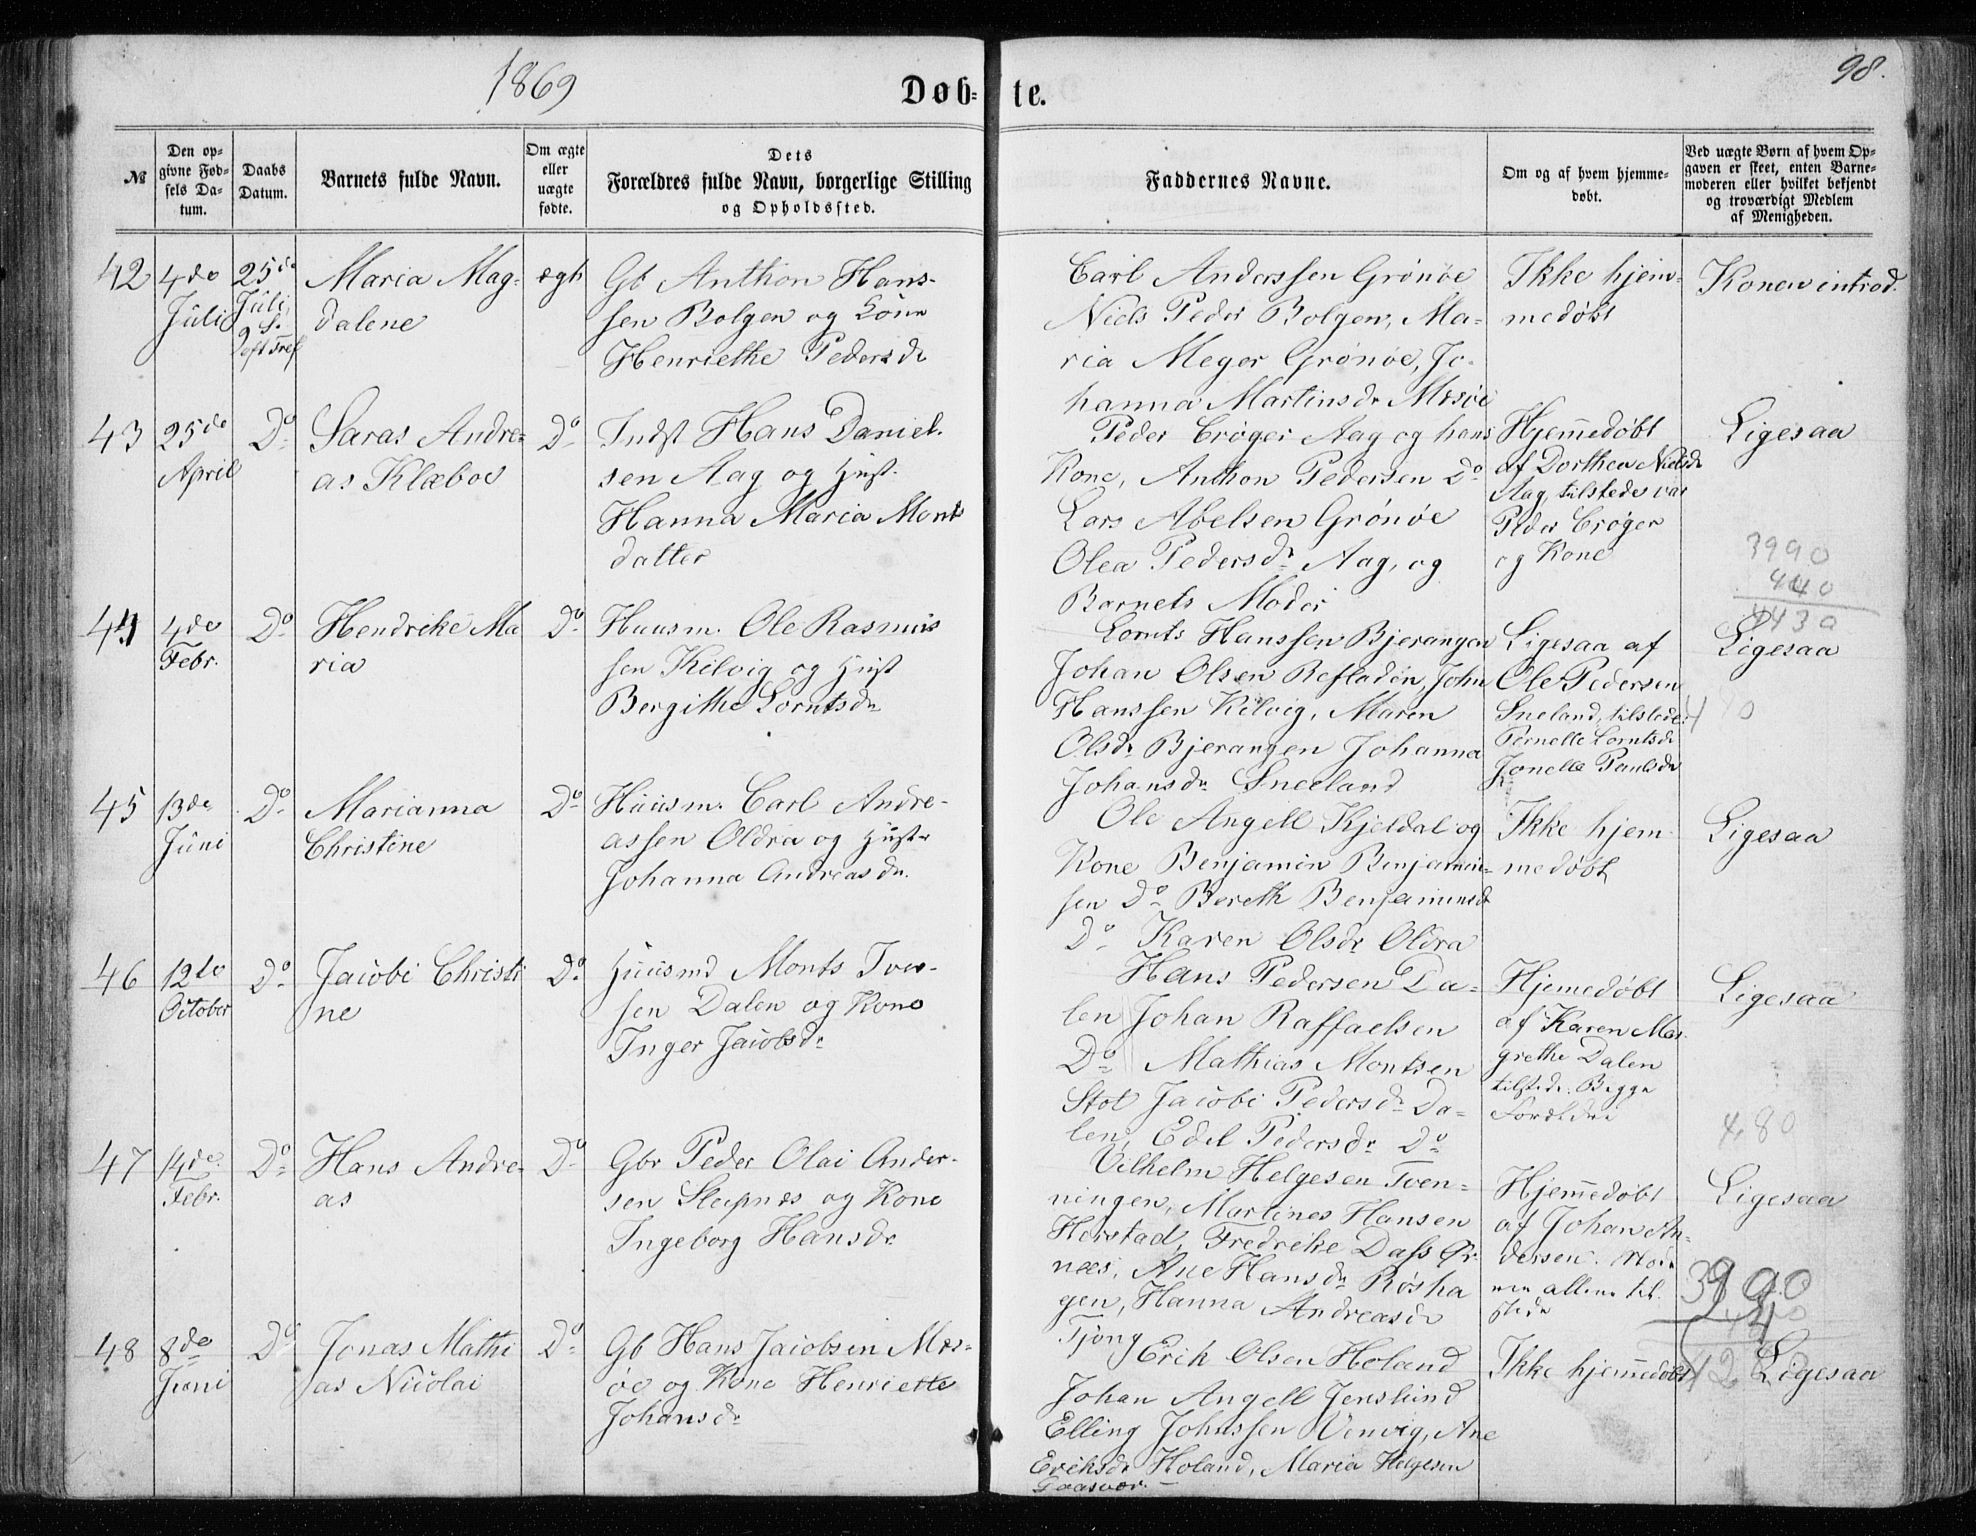 1869
98.
Døb-
te.
№
Den op-
givne Fød-
sels Da-
tum.
Daabs
Datum.
Barnets fulde Navn.
Om ægte
eller
uægte
fødte.
Dets
Forældres fulde Navn, borgerlige Stilling
og Opholdssted.
Faddernes Navne.
Om og af hvem hjemme-
døbt.
Ved uægte Børn af hvem Op-
gaven er skeet, enten Barne-
moderen eller hvilket bekjendt
og troværdigt Medlem
af Menigheden.
42
4de
Juli
25de
Juli,
9 S.
eft Tref
Maria Mag-
dalene
ægt
Gb Anthon Hans-
sen Bolgen og
Henriethe Pedersdr
Carl Anderssen Grønøe
Niels Peder Bolgen, Ma-
ria Meyer Grønøe, Jo-
hanna Martinsdr Mesøe
Ikke hjem-
medøbt
Konen introd.
43
25de
April
Do
Saras Andre-
as Klæboe
Do
Indst Hans Daniel-
sen Aag og Hust.
Hanna Maria Monts
datter
Peder Crøger Aag og hans
Kone, Anthon Pedersen Do
Lars Abelsen Grønøe
Olea Pedersdr Aag, og
Barnets Moder
Hjemmedøbt
af Dorthea Nielsdr
Aag, tilstede var
Peder Crøger
og Kone
Ligesaa
3990
440
4430
44
4de
Febr.
Do
Hendrike Ma
ria
Do
Huusm. Ole Rasmus
sen Kilvig og Hust
Bergithe Lorntsdr
Lornts Hanssen Bjerangen
Johan Olsen Refladøn, John
Hanssen Kilvig, Maren
Olsdr Bjerangen Johanna
Johansdr Sneeland
Ligesaa af
Ole Pedersen
Sneland, tilstede:
Pernelle Lorntsdr
Jonelle Paulsdr
Ligesaa
45
13de
Juni
Do
Marianna
Christine
Do
Huusm. Carl Andre-
assen Oldra og Hustr
Johanna Andreasdr.
Ole Angell Kjeldal og
Kone Benjamin Benjamin-
sen Do Bereth Benjaminsdr
Do Karen Olsdr Oldra
Ikke hjem-
medøbt
Ligesaa
46
12te
October
Do
Jacobi Christi
ne
Do
Huusmd Monts Iver-
sen Dalen og Kone
Inger Jacobsdr
Hans Pedersen Da-
len Johan Raffaelsen
Do Mathias Montsen
Stot Jacobi Pedersdr Da-
len, Edel Pedersdr Do
Hjemedøbt
af Karen Mar-
grethe Dalen
tilstede Begge
Forældre
Ligesaa
480
47
14de
Febr.
Do
Hans Andre-
as
Do
Gbr Peder Olai Ander-
sen Sleipnes og Kone
Ingeborg Hansdr
Vilhelm Helgesen Tven-
ningen, Martines Hansen
Horstad, Fredrike Dass Ør-
nes, Ane Hansdr Røsha
gen, Hanna Andreasdr
Tjong
Hjemmedøbt
af Johan An-
dersen. Mode
ren allene til
stede
Ligesaa
3990
48
8de
Juni
Do
Jonas Mathi
as Nicolai
Do
Gb Hans Jacobsen Mes-
øe og Kone Henriette
Johansdr
Erik Olsen Holand
Johan Angell Jenslund
Elling Johnssen Venvig, Ane
Eriksdr Holand, Maria Helgesen
Gaasvær.
Ikke hjemmedøbt
Ligesaa